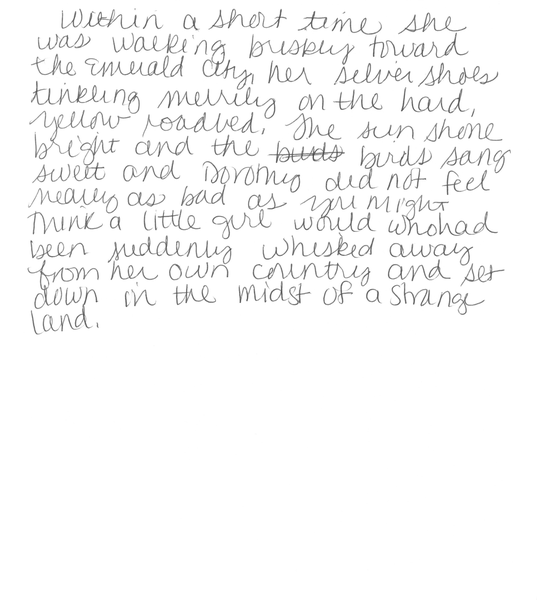 Within a short time she
was walking briskly toward
the Emerald City, her silver shoes
tinkling merrily on the hard,
yellow roadbed. The sun shone
bright and the buds birds sang
sweet and Dorothy did not feel
nearly as bad as you might
think a little girl would who had
been suddenly whisked away
from her own country and set
down in the midst of a strange
land.